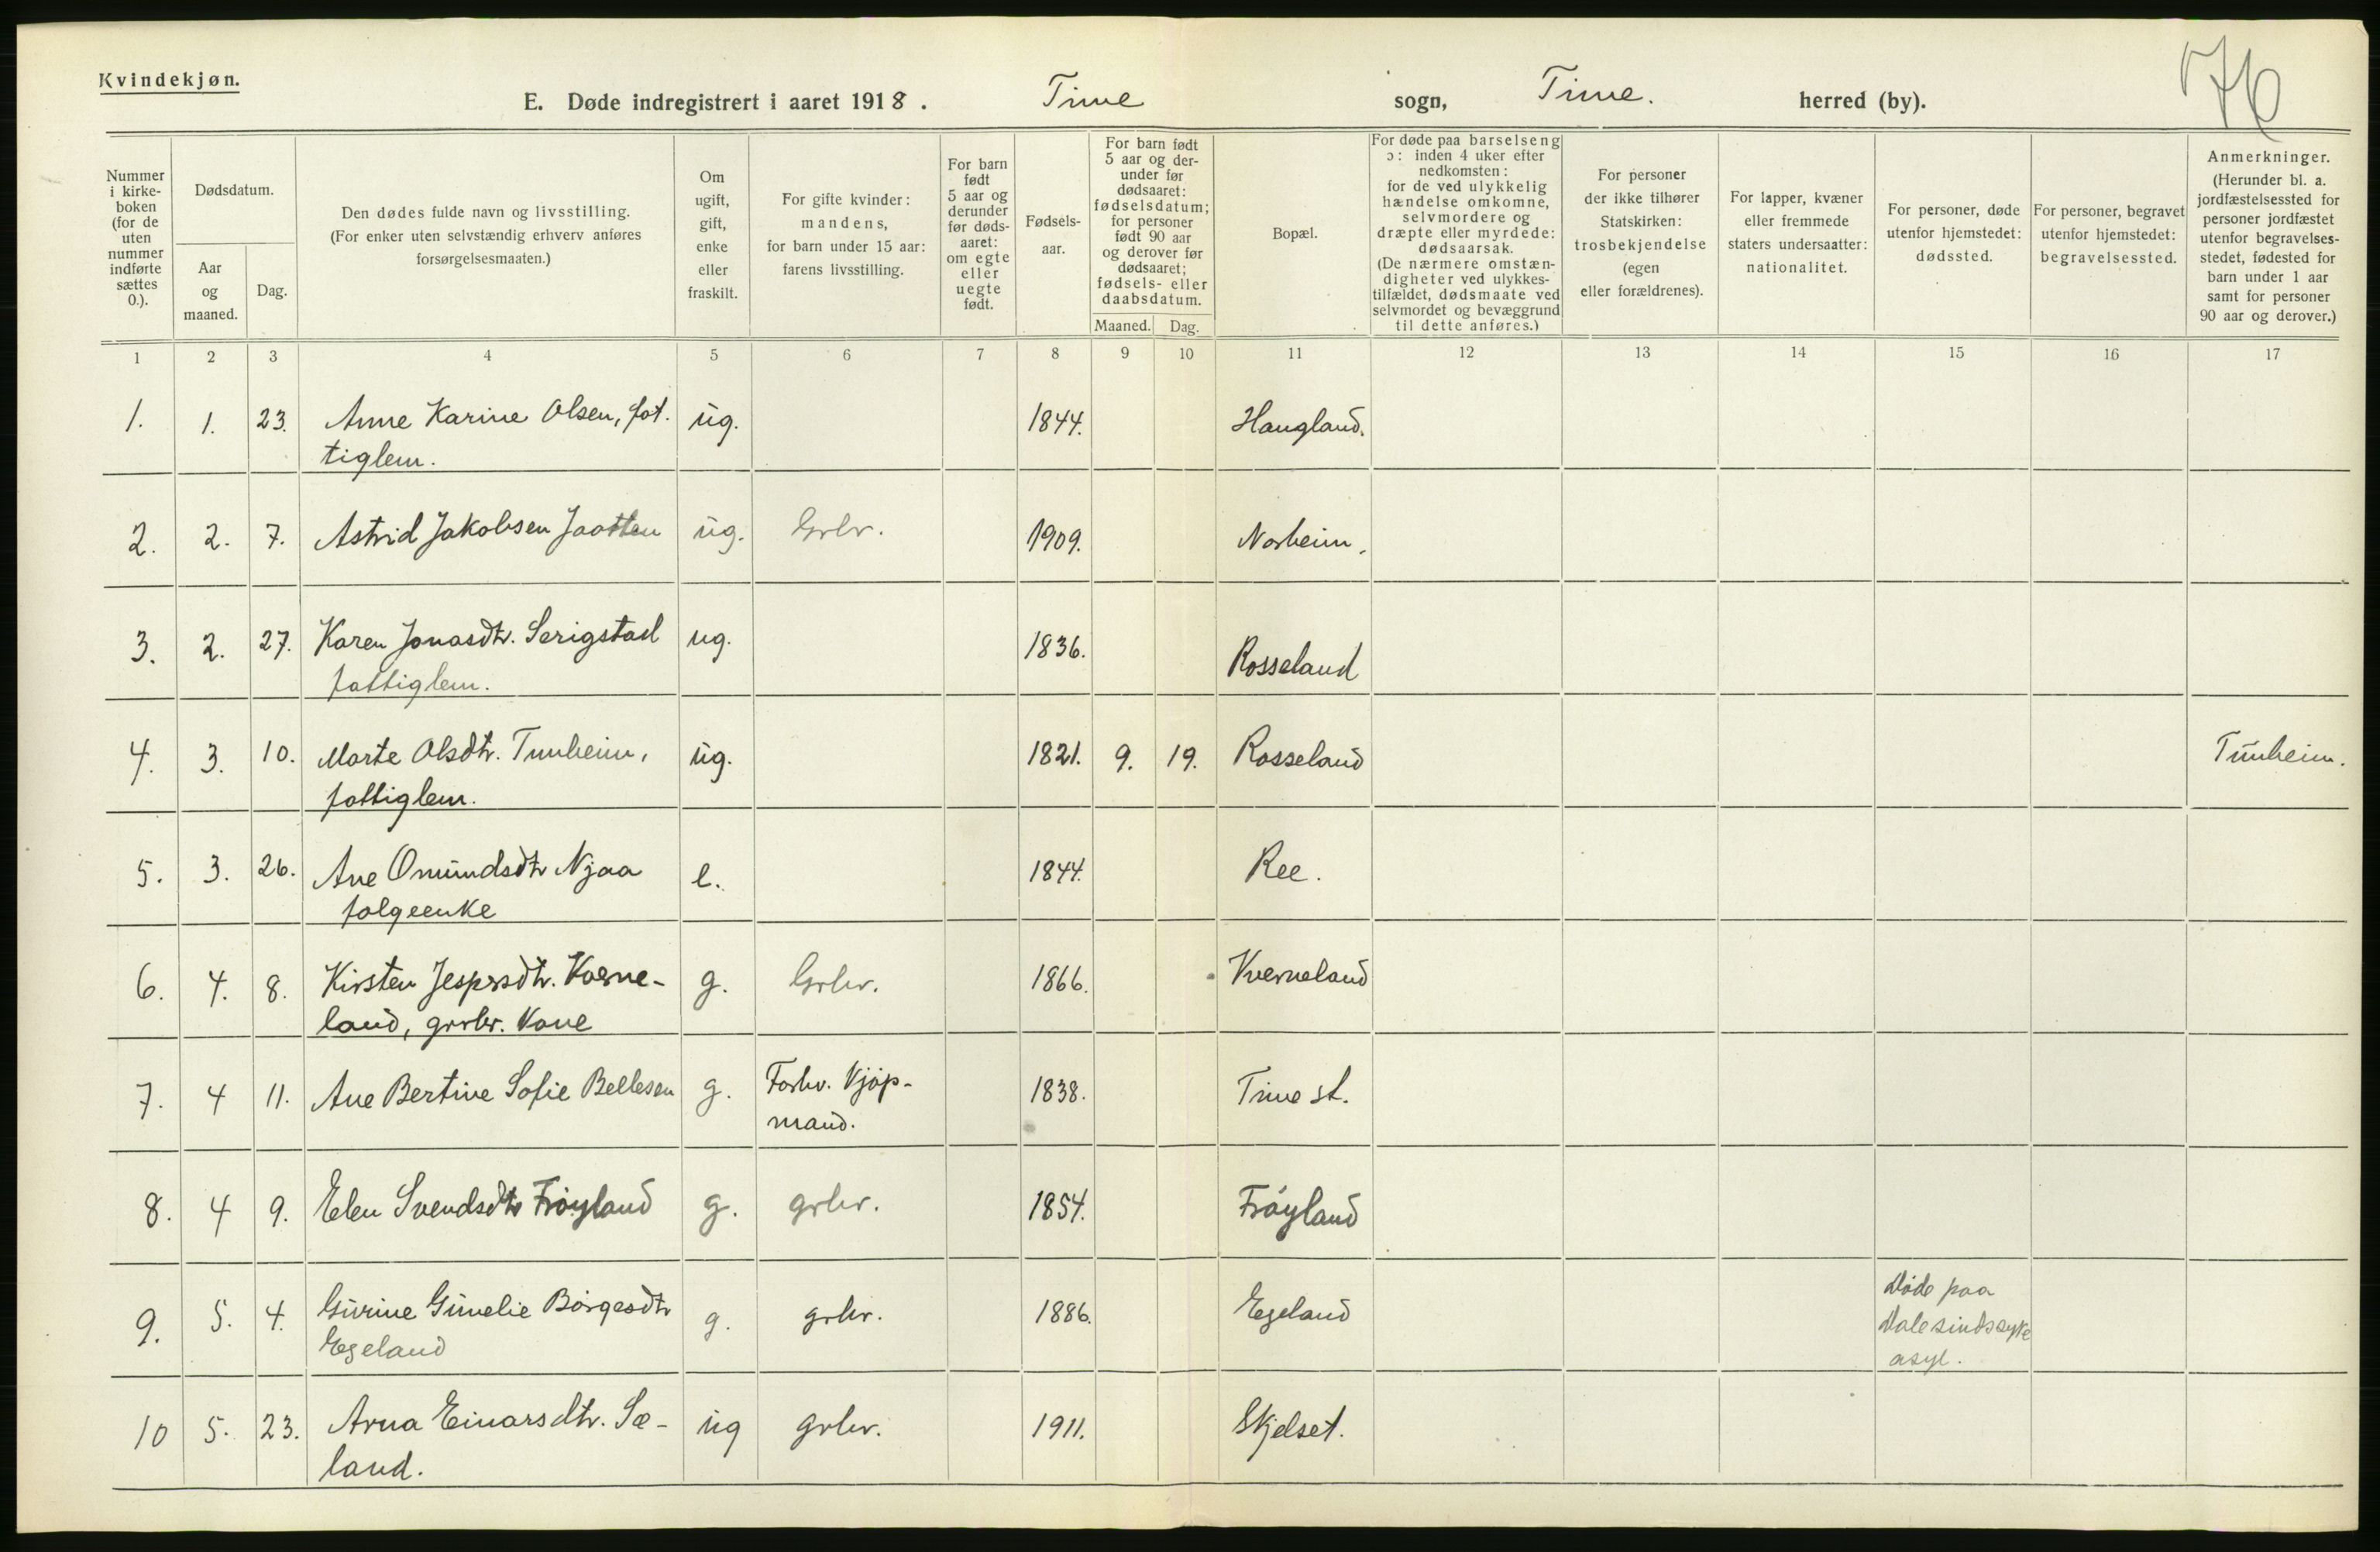 Kvindekjøn.
E. Døde indregistrert i aaret 1918. Time sogn, Time. herred (by).
76
Nummer i kirkeboken (for de uten nummer indførte sættes 0.).
Dødsdatum.
Aar og maaned.
Dag.
Den dødes fulde navn og livsstilling.
(For enker uten selvstændig erhverv anføres forsørgelsesmaaten.)
Om ugift, gift, enke eller fraskilt.
For gifte kvinder: mandens, for barn under 15 aar: farens livsstilling.
For barn født 5 aar og derunder før dødsaaret: om egte eller uegte født.
Fødselsaar.
For barn født 5 aar og derunder før dødsaaret: fødselsdatum; for personer født 90 aar og derover før dødsaaret; fødsels- eller daabsdatum.
Maaned. Dag.
Bopæl.
For døde paa barselseng ɔ: inden 4 uker efter nedkomsten: for de ved ulykkelig hændelse omkomne, selvmordere og dræpte eller myrdede: dødsaarsak.
(De nærmere omstændigheter ved ulykkestilfældet, dødsmaate ved selvmordet og bevæggrund til dette anføres.)
For personer der ikke tilhører Statskirken: trosbekjendelse (egen eller forældrenes).
For lapper, kvæner eller fremmede staters undersaatter: nationalitet.
For personer, døde utenfor hjemstedet: dødssted.
For personer, begravet utenfor hjemstedet: begravelsessted.
Anmerkninger.
(Herunder bl. a. jordfæstelsessted for personer jordfæstet utenfor begravelsesstedet, fødested for barn under 1 aar samt for personer 90 aar og derover.)
1 2 3 4 5 6 7 8 9 10 11 12 13 14 15 16 17
1. 1. 23. Anne Karine Olsen, fat. ug. 1844. Haugland.
tiglem.
2. 2. 7. Astrid Jakobsen Jaatten ug. Grbr. 1909. Norheim.
3. 2. 27. Karen Jonasdtr. Serigstad ug. 1836. Rosseland
fattiglem.
4. 3. 10. Marte Olsdtr. Tunheim, ug. 1821. 9. 19. Rosseland Tunheim.
fattiglem.
5. 3. 26. Ane Omundsdtr Njaa e. 1844. Ree.
folgeenke
6. 4. 8. Kirsten Jespersdtr. Kverne- g. Grbr. 1866. Kverneland
land, grbr. Kone
7. 4 11. Ane Bertine Sofie Bellesen g. Forhv. Kjøp- 1838. Time st.
mand.
8. 4 9. Elen Svendsdtr Frøyland g. grbr. 1854. Frøyland
9. 5. 4. Gurine Gunelie Børgesdtr g. grbr. 1886. Egeland Døde paa
Egeland Dale sindssyke
asyl.
10 5. 23. Arna Einarsdtr. Sæ- ug grbr. 1911. Skjelset.
land.